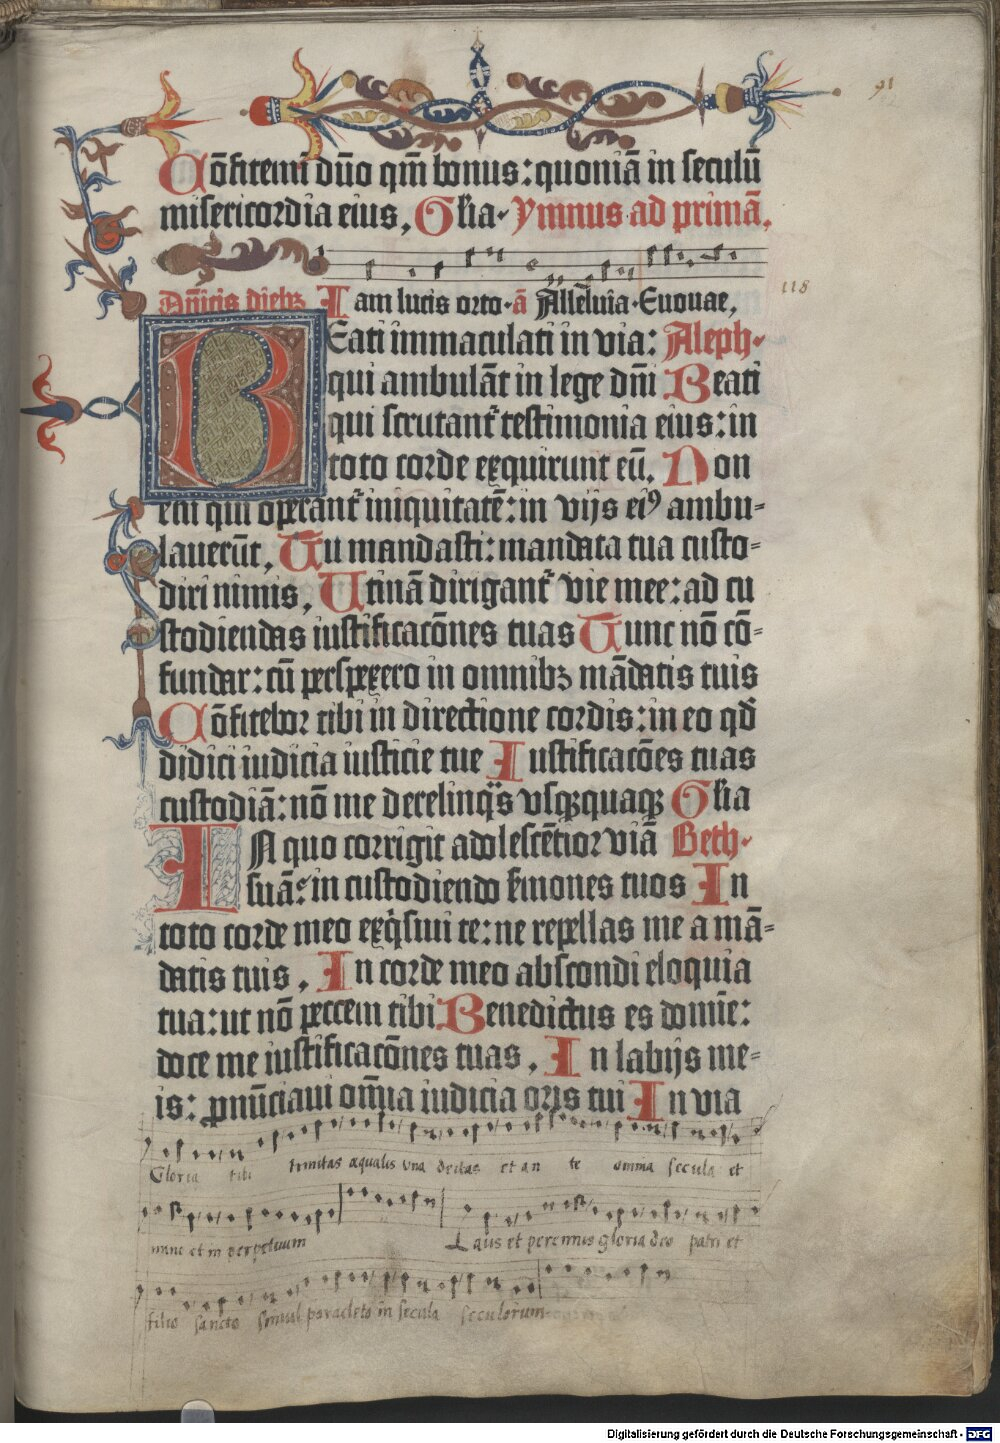 91
Cōfitemi dño qm̄ bonus: quoniā in seculū
misericordia eius, Glia· Ymnus ad primā,
118
Dñicis diebꝫ Iam lucis orto· ā Allēluia· Euouae,
Beati immaculati in via: Aleph·
qui ambulāt in lege dñi Beati
qui scrutant᷑ testimonia eius: in
toto corde exquirunt eū, Non
eni qui operant᷑ iniquitatē: in vijs eiꝰ ambu-
lauerūt, Tu mandasti: mandata tua custo-
diri nimis, Utinā dirigant᷑ vie mee: ad cu
stodiendas iustificacōnes tuas Tunc nō cō-
fundar: cū perspexero in omnibꝫ mādatis tuis
Cōfitebor tibi in directione cordis: in eo qď
didici iudicia iusticie tue Iustificacōes tuas
custodiā: nō me derelinq̃s vsqꝫquaqꝫ Glia
IN quo corrigit adolescētior viā Beth·
suā: in custodiendo s̃mones tuos In
toto corde meo exq̃siui te: ne repellas me a mā-
datis tuis, In corde meo abscondi eloquia
tua: ut nō peccem tibi Benedictus es domīe:
doce me iustificacōnes tuas, In labijs me-
is: ꝓnūciaui om̄ia iudicia oris tui In via
Gloria tibi trinitas aequalis una deitas et an te omnia secula et
nunc et in perpetuum Laus et perennis gloria deo patri et
filio sancto simul paracleto in secula seculorum
Digitalisierung gefördert durch die Deutsche Forschungsgemeinschaft - DFG